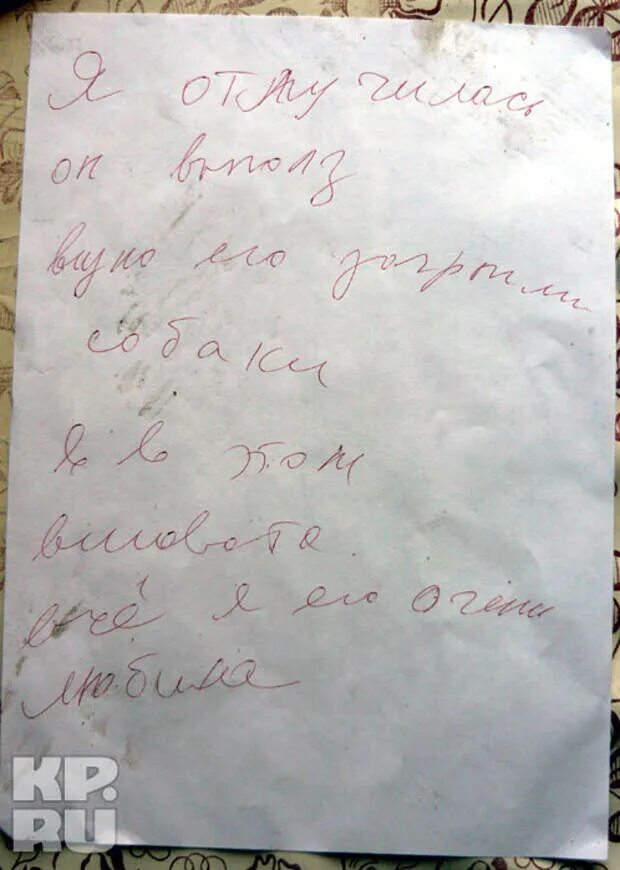 Я отлучилась
он выполз
видно его загрызли
собаки
я в этом
виновата
ещё я его очень
любила
КР.
RU